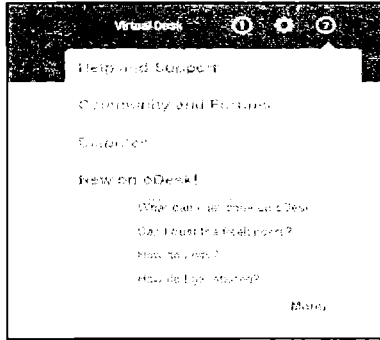 Virtual Desk
Help and Support
Community and Forums
New on oDesk!
What can I get done on oDesk
Can I trust the freelancers?
How do I
How do I get started?
More